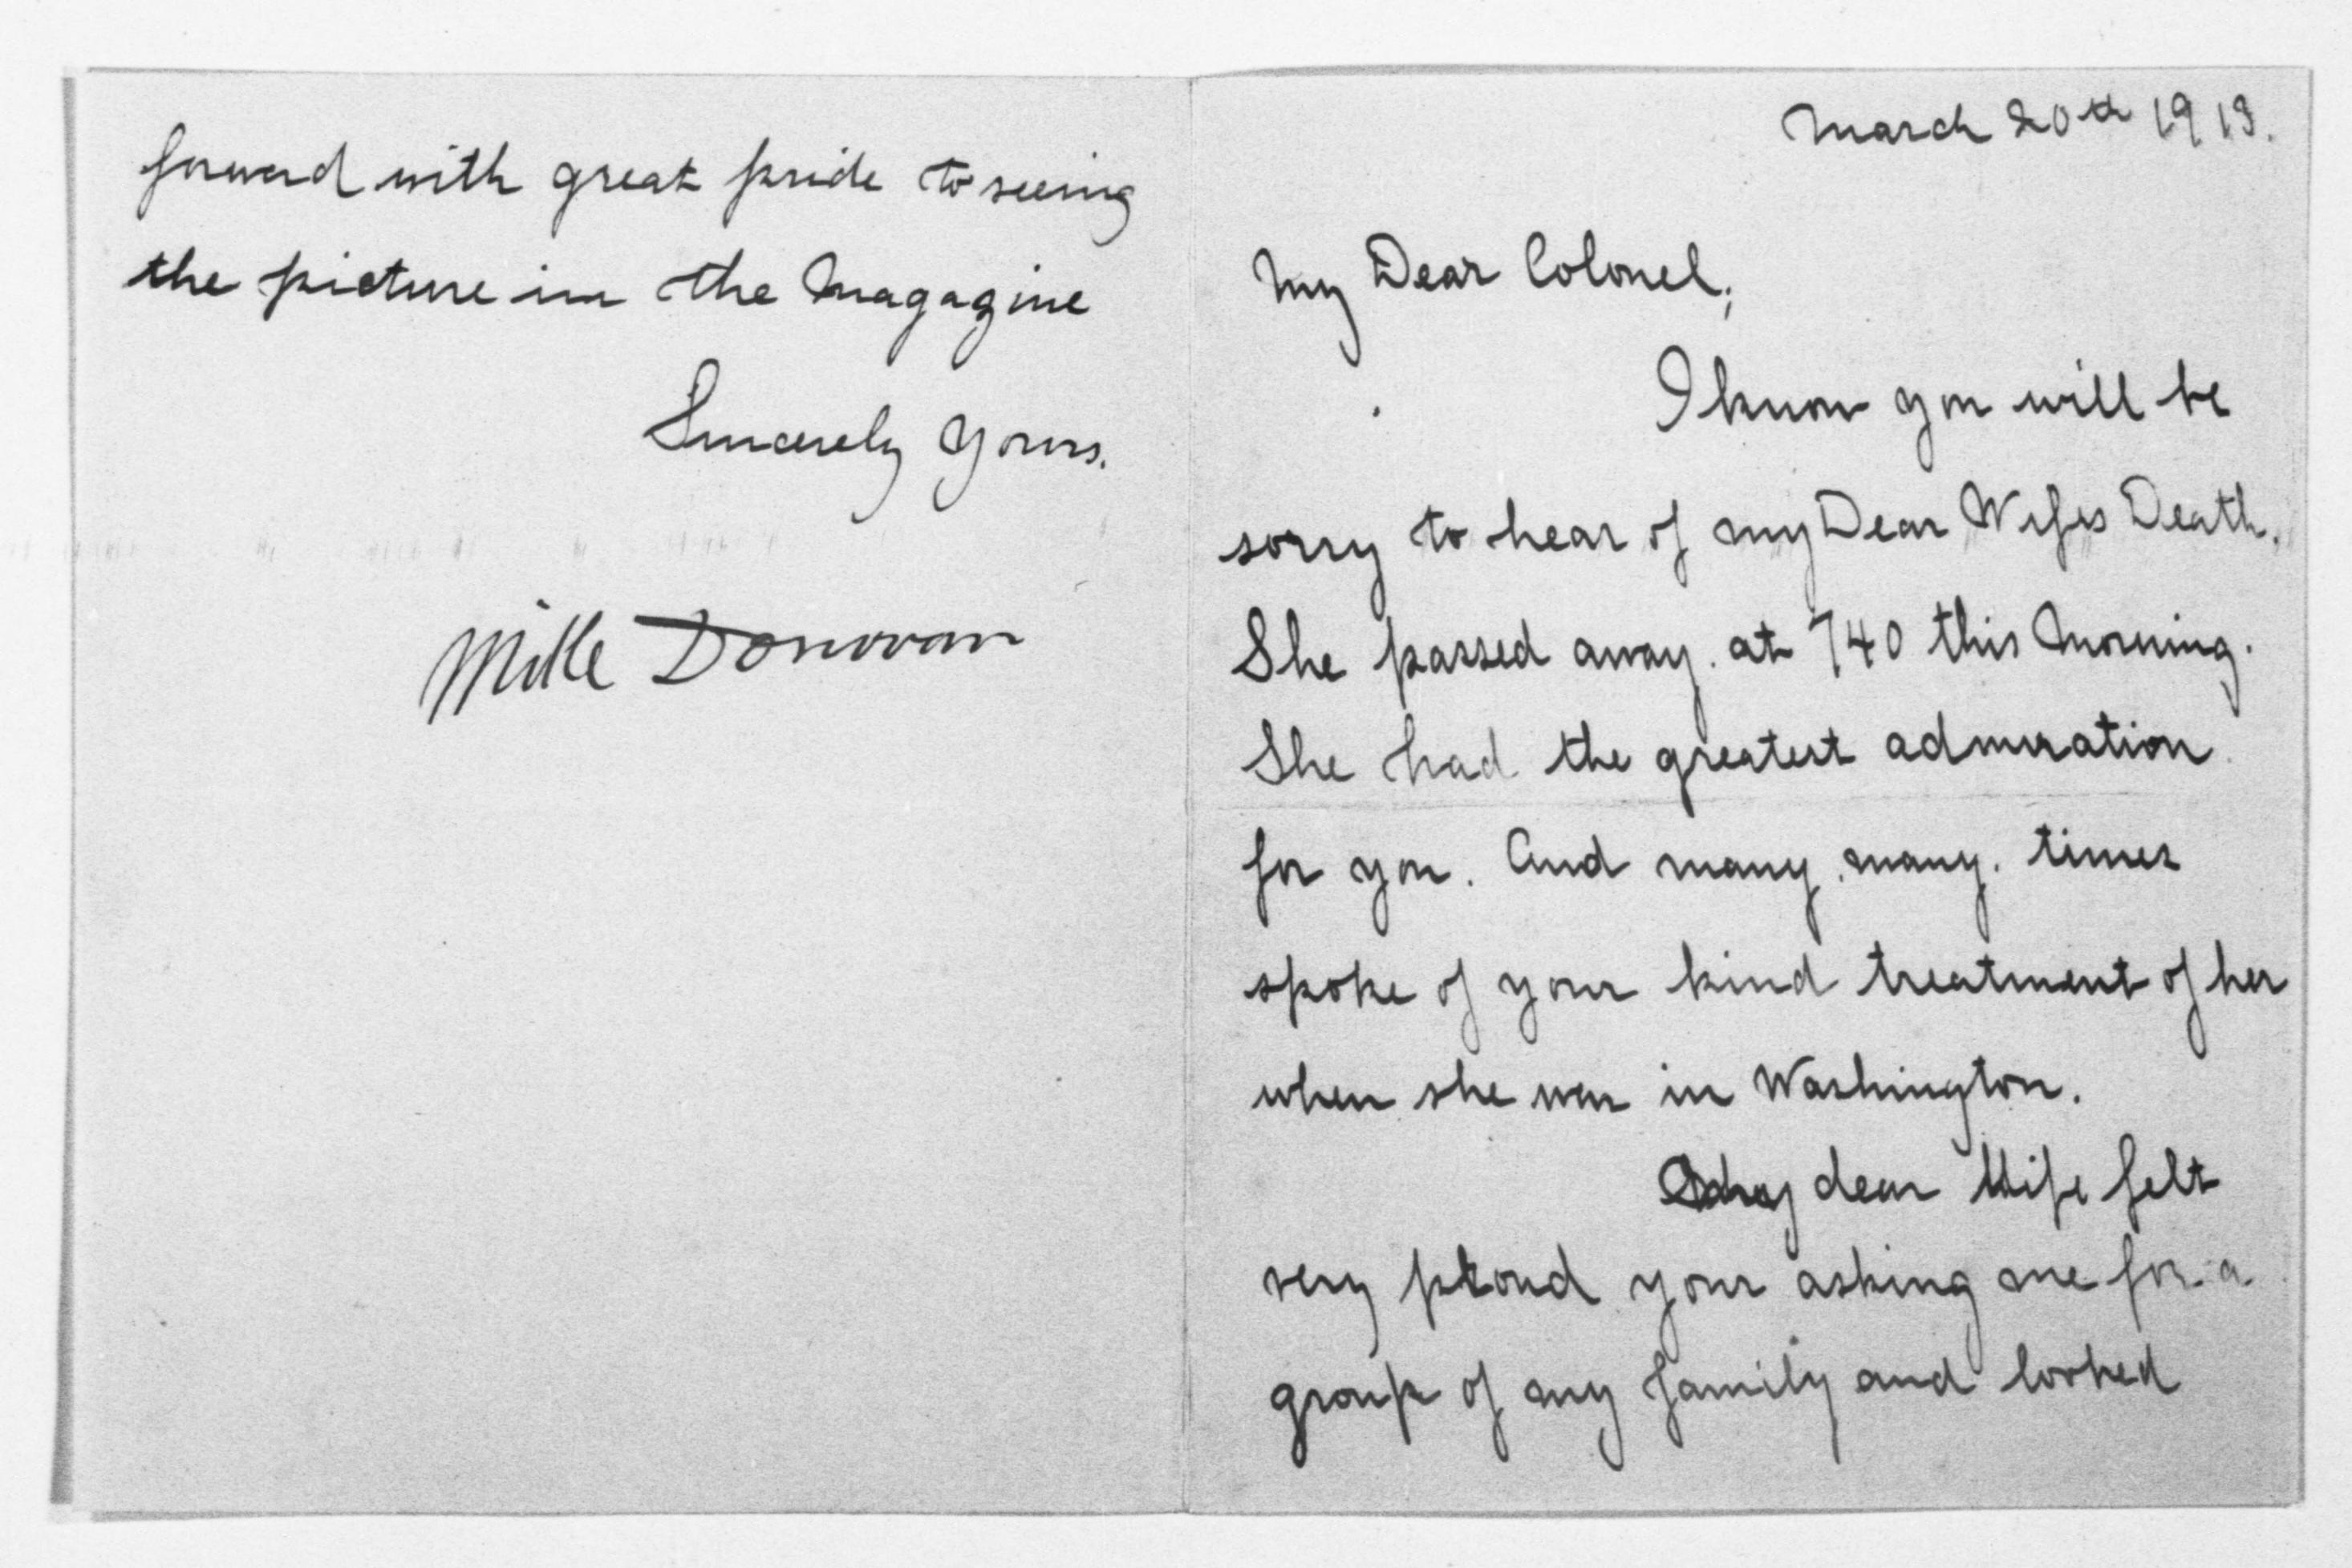 March 20th 1913.
My Dear Colonel;
I know you will be
sorry to hear of my Dear Wifes Death.
She passed away. at 740 this Morning.
She had the greatest admiration
for you. And many. many. times
spoke of your kind treatment of her
when she was in Washington.
My dear Wife felt
very proud your asking me for a
group of my family and looked
forward with great pride to seeing
the picture in the Magazine
Sincerely Yours.
Mike Donovan